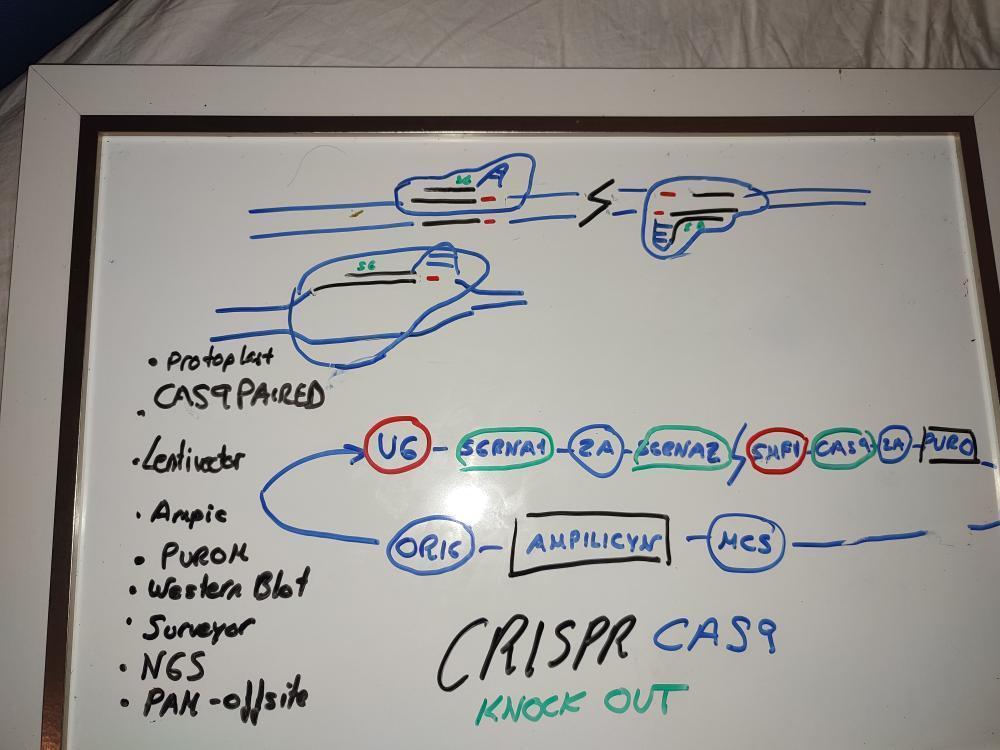 SG
A
SG
SG
• Protoplast
• CAS9 PAIRED
• Lentivector
• Ampic
• PUROM
• Western Blot
• Surveyor
• NGS
• PAM-offsite
U6 - SGRNA1 - 2A - SGRNA2 SMF1 - CAS9 - 2A - PURO
ORIG - AMPILICYN - MCS
CRISPR CAS9
KNOCK OUT